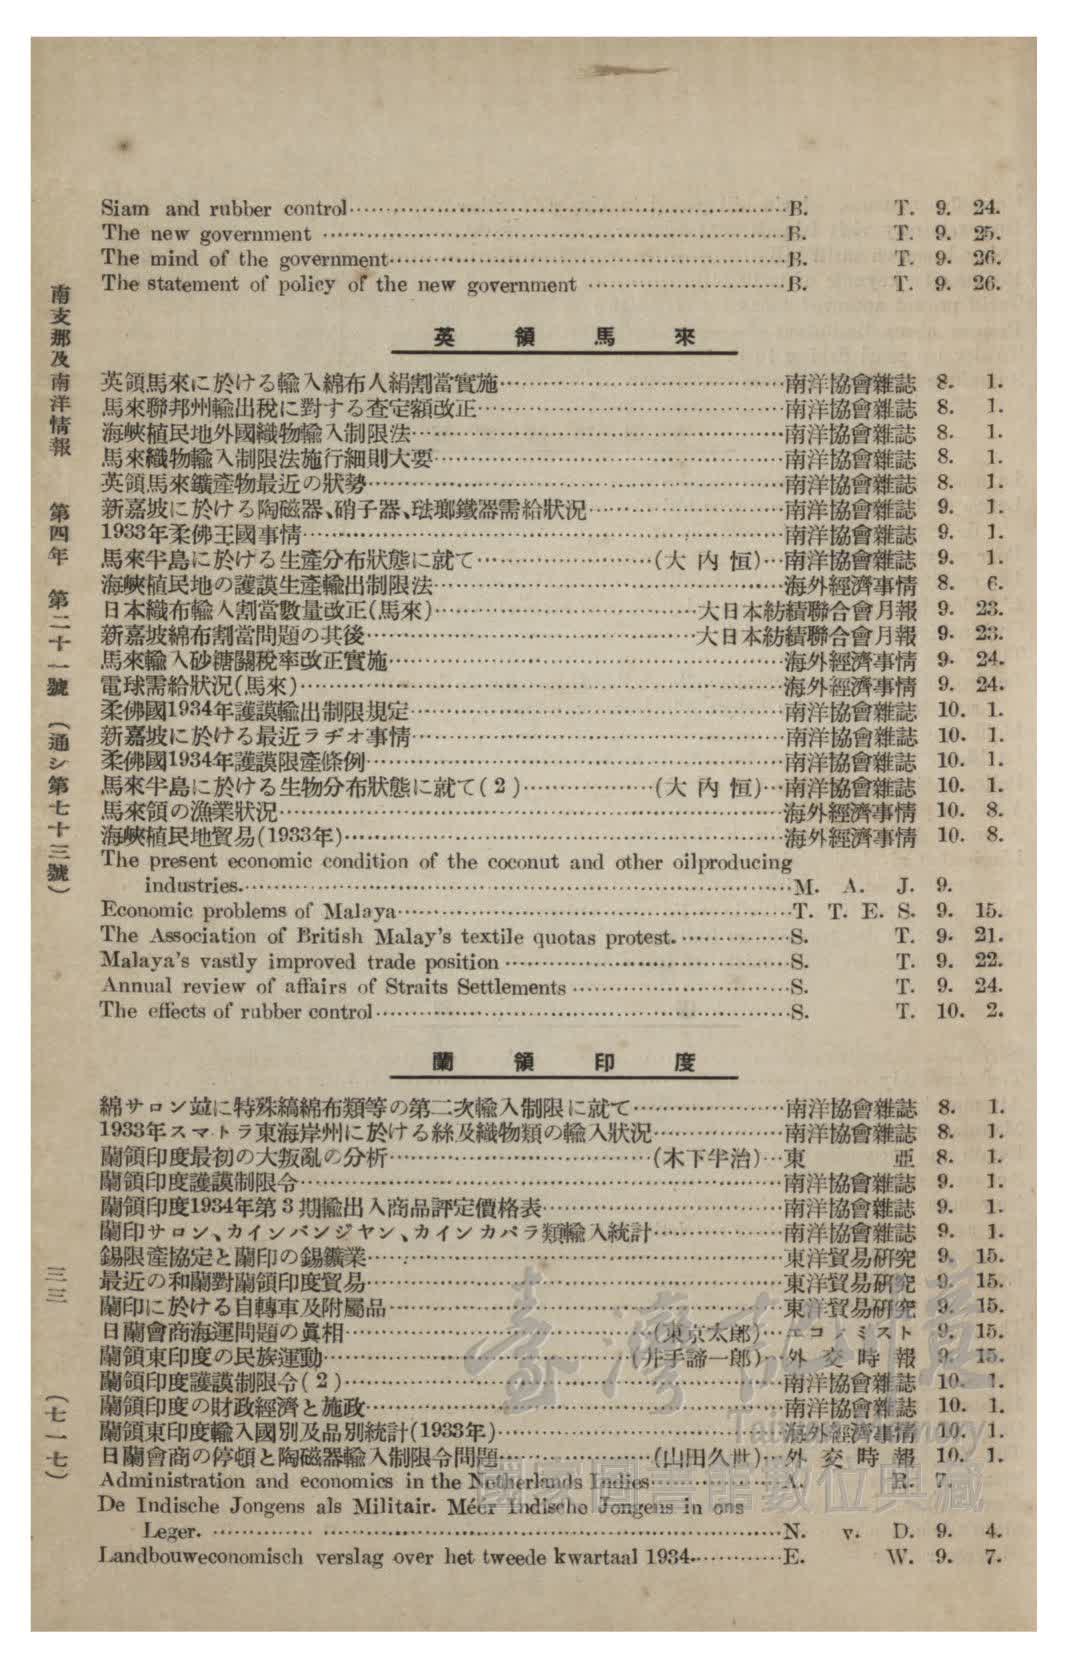 Siam and rubber control……B. T. 9. 24.
The new government……B. T. 9. 25.
The mind of the government……B. T. 9. 26.
The statement of policy of the new government……B. T. 9. 26.
英領馬來
英領馬來に於ける輸入綿布人絹割當實施……南洋協會雜誌 8. 1.
馬來聯邦州輸出稅に對する査定額改正……南洋協會雜誌 8. 1.
海峽植民地外國織物輸入制限法……南洋協會雜誌 8. 1.
馬來織物輸入制限法施行細則大要……南洋協會雜誌 8. 1.
英領馬來鑛產物最近の狀勢……南洋協會雜誌 8. 1.
新嘉坡に於ける陶磁器、硝子器、琺瑯鐵器需給狀況……南洋協會雜誌 9. 1.
1933年柔佛王國事情……南洋協會雜誌 9. 1.
馬來半島に於ける生產分布狀態に就て……(大內恒)…南洋協會雜誌 9. 1.
海峽植民地の護謨生產輸出制限法……海外經濟事情 8. 6.
日本織布輸入割當數量改正(馬來)……大日本紡績聯合會月報 9. 23.
新嘉坡綿布割當問題の其後……大日本紡績聯合會月報 9. 23.
馬來輸入砂糖關稅率改正實施……海外經濟事情 9. 24.
電球需給狀況(馬來)……海外經濟事情 9. 24.
柔佛國1934年護謨輸出制限規定……南洋協會雜誌 10. 1.
新嘉坡に於ける最近ラヂオ事情……南洋協會雜誌 10. 1.
柔佛國1934年護謨限產條例……南洋協會雜誌 10. 1.
馬來半島に於ける生物分布狀態に就て(2)……(大內恒)…南洋協會雜誌 10. 1.
馬來領の漁業狀況……海外經濟事情 10. 8.
海峽植民地貿易(1933年)……海外經濟事情 10. 8.
The present economic condition of the coconut and other oilproducing
industries.……M. A. J. 9.
Economic problems of Malaya……T. T. E. S. 9. 15.
The Association of British Malay's textile quotas protest.……S. T. 9. 21.
Malaya's vastly improved trade position……S. T. 9. 22.
Annual review of affairs of Straits Settlements……S. T. 9. 24.
The effects of rubber control……S. T. 10. 2.
蘭領印度
綿サロン竝に特殊縞綿布類等の第二次輸入制限に就て……南洋協會雜誌 8. 1.
1933年スマトラ東海岸州に於ける絲及織物類の輸入狀況……南洋協會雜誌 8. 1.
蘭領印度最初の大叛亂の分析……(木下半治)…東亞 8. 1.
蘭領印度護謨制限令……南洋協會雜誌 9. 1.
蘭領印度1934年第3期輸出入商品評定價格表……南洋協會雜誌 9. 1.
蘭印サロン、カインパンジヤン、カインカパラ類輸入統計……南洋協會雜誌 9. 1.
錫限產協定と蘭印の錫鑛業……東洋貿易硏究 9. 15.
最近の和蘭對蘭領印度貿易……東洋貿易硏究 9. 15.
蘭印に於ける自轉車及附屬品……東洋貿易硏究 9. 15.
日蘭會商海運問題の眞相……(東京太郎)…エコノミスト 9. 15.
蘭領東印度の民族運動……(井手諦一郎)…外交時報 9. 15.
蘭領印度護謨制限令(2)……南洋協會雜誌 10. 1.
蘭領印度の財政經濟と施政……南洋協會雜誌 10. 1.
蘭領東印度輸入國別及品別統計(1933年)……海外經濟事情 10. 1.
日蘭會商の停頓と陶磁器輸入制限令問題……(山田久世)…外交時報 10. 1.
Administration and economics in the Netherlands Indies……A. R. 7.
De Indische Jongens als Militair. Méér Indische Jongens in ons
Leger.……N. v. D. 9. 4.
Landbouweconomisch verslag over het tweede kwartaal 1934.……E. W. 9. 7.
南支那及南洋情報 第四年 第二十一號 (通シ第七十三號)
三三 (七一七)
臺灣記憶
Taiwan Memory
國家圖書館數位典藏